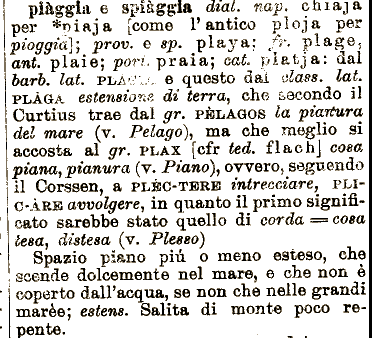 piàggia e spiàggia dial. nap. chiaja
per *piaja [come l'antico ploja per
pioggia]; prov. e sp. playa; fr. plage,
ant. plaie; port. praia; cat. platja: dal
barb. lat. PLAGIA e questo dal class. lat.
PLÀGA estensione di terra, che secondo il
Curtius trae dal gr. PÈLAGOS la pianura
del mare (v. Pelago), ma che meglio si
accosta al gr. PLAX [cfr ted. flach] cosa
piana, pianura (v. Piano), ovvero, seguendo
il Corssen, a PLÈC-TERE intrecciare, PLI-
C-ÀRE avvolgere, in quanto il primo signifi-
cato sarebbe stato quello di corda = cosa
tesa, distesa (v. Plesso)
Spazio piano piú o meno esteso, che
scende dolcemente nel mare, e che non è
coperto dall'acqua, se non che nelle grandi
marèe; estens. Salita di monte poco re-
pente.